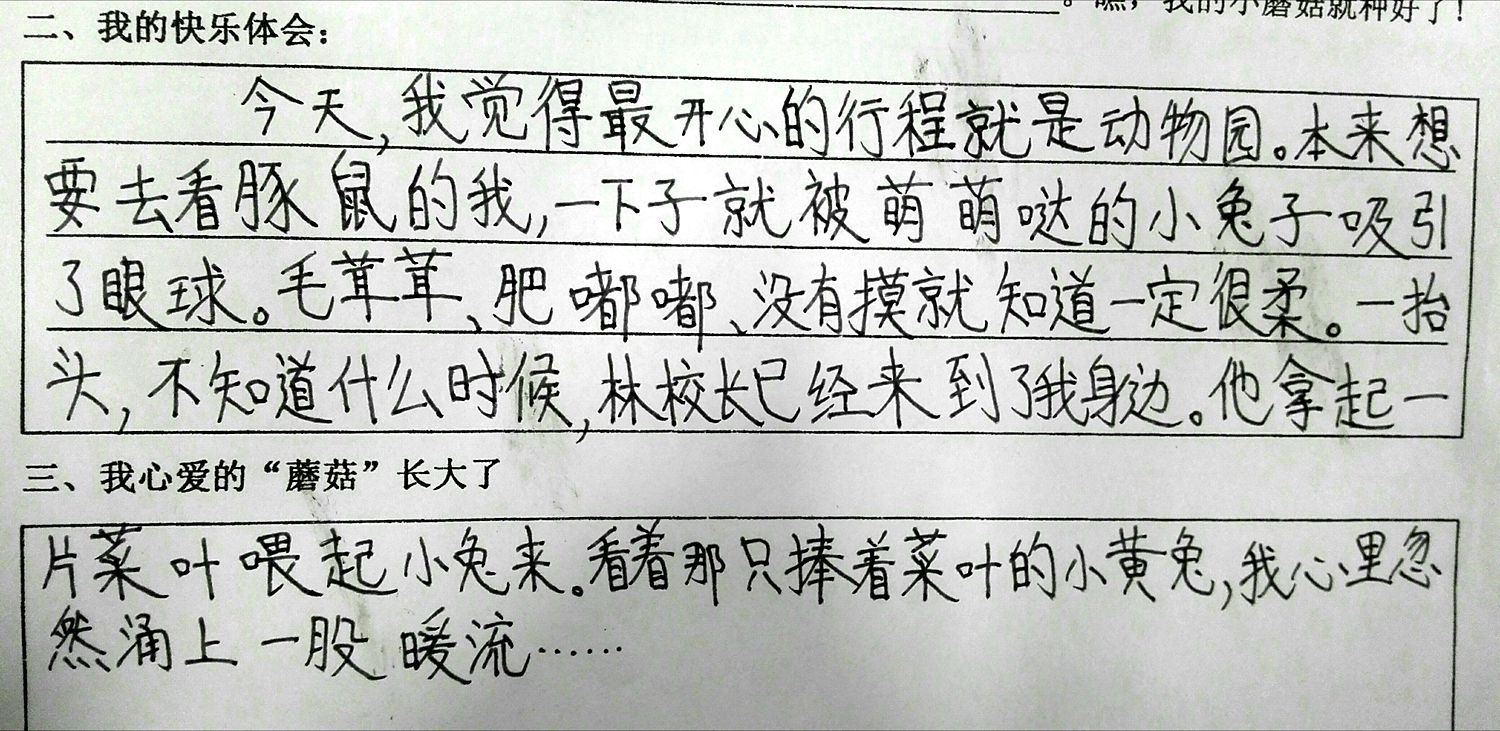 。瞧，我的小蘑菇就种好了！
二、我的快乐体会：
今天,我觉得最开心的行程就是动物园。本来想
要去看豚鼠的我,一下子就被萌萌哒的小兔子吸引
了眼球。毛茸茸、肥嘟嘟、没有摸就知道一定很柔。一抬
头,不知道什么时候,林校长已经来到了我身边。他拿起一
三、我心爱的“蘑菇”长大了
片菜叶喂起小兔来。看着那只捧着菜叶的小黄兔,我心里忽
然涌上一股暖流……